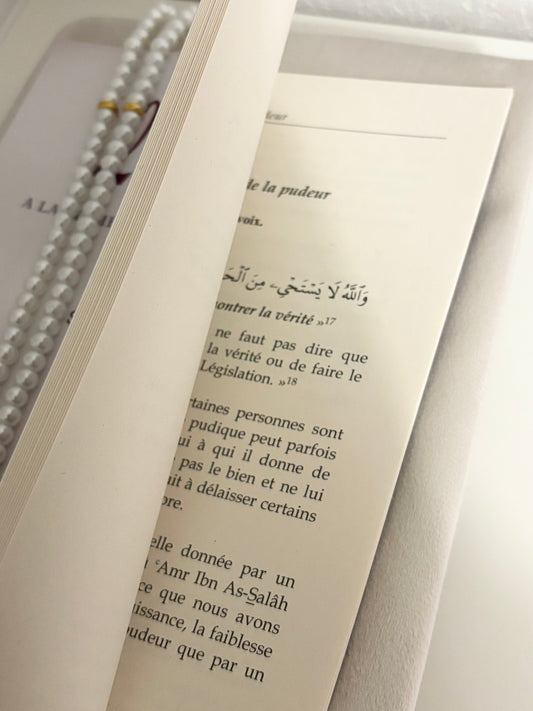 A LA
de la pudeur
voix.
وَٱللَّهُ لَا يَسْتَحْيِۦ مِنَ
la vérité »17
ne faut pas dire que
la vérité ou de faire le
Législation. »18
personnes sont
pudique peut parfois
à qui il donne de
pas le bien et ne lui
à délaisser certains
donnée par un
ʿAmr Ibn As-Salâh
ce que nous avons
la faiblesse
que par un